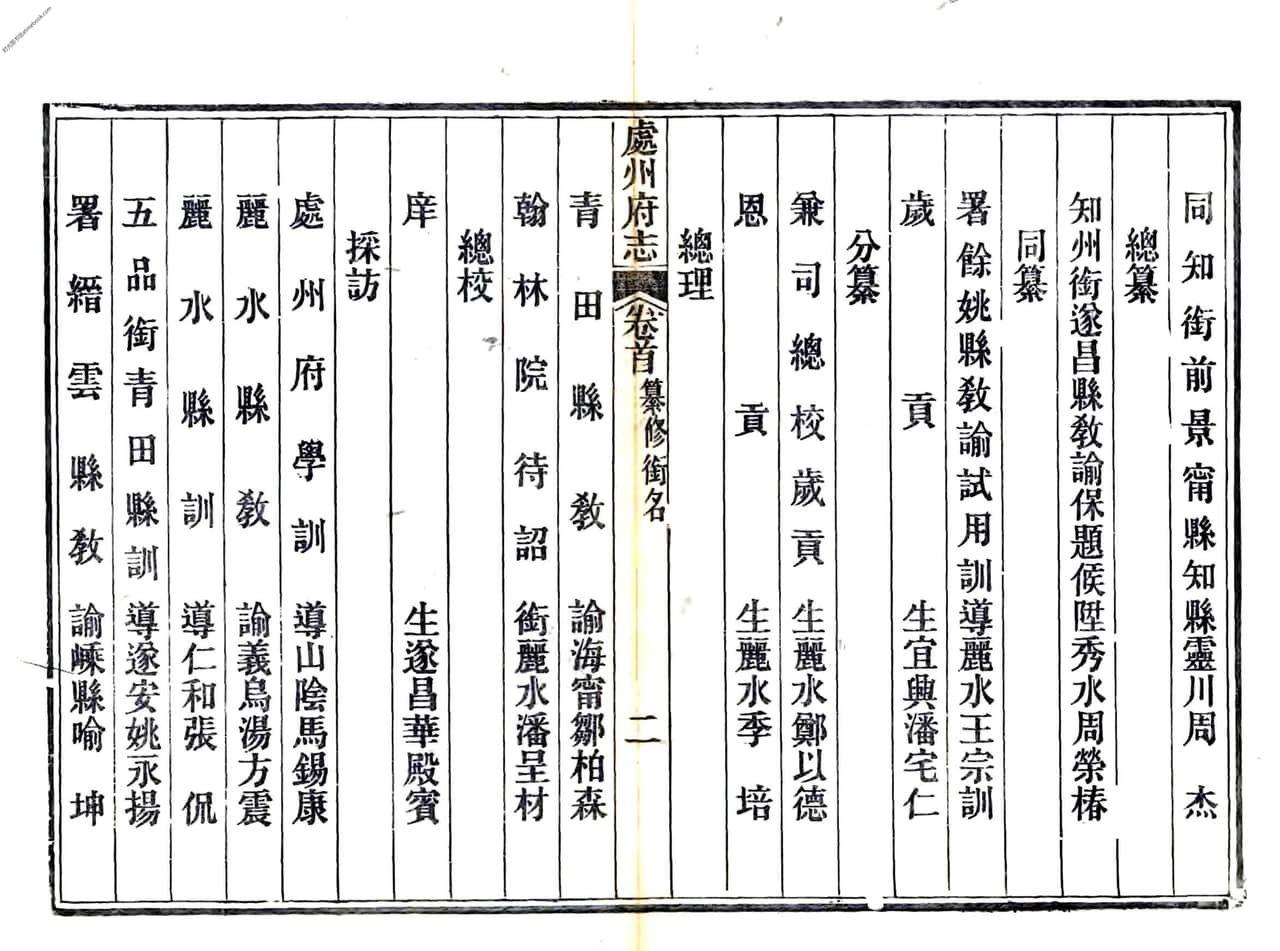 同知銜前景甯縣知縣靈川周杰
總纂
知州銜遂昌縣教諭保題候陞秀水周榮椿
同纂
署餘姚縣教諭試用訓導麗水王宗訓
歲貢生宜興潘宅仁
分纂
兼司總校歲貢生麗水鄭以德
恩貢生麗水季培
總理
處州府志 卷首 纂修銜名 二
青田縣教諭海甯鄒柏森
翰林院待詔銜麗水潘呈材
總校
庠生遂昌華殿賓
採訪
處州府學訓導山陰馬錫康
麗水縣教諭義烏湯方震
麗水縣訓導仁和張侃
五品銜青田縣訓導遂安姚永揚
署縉雲縣教諭嵊縣喻坤